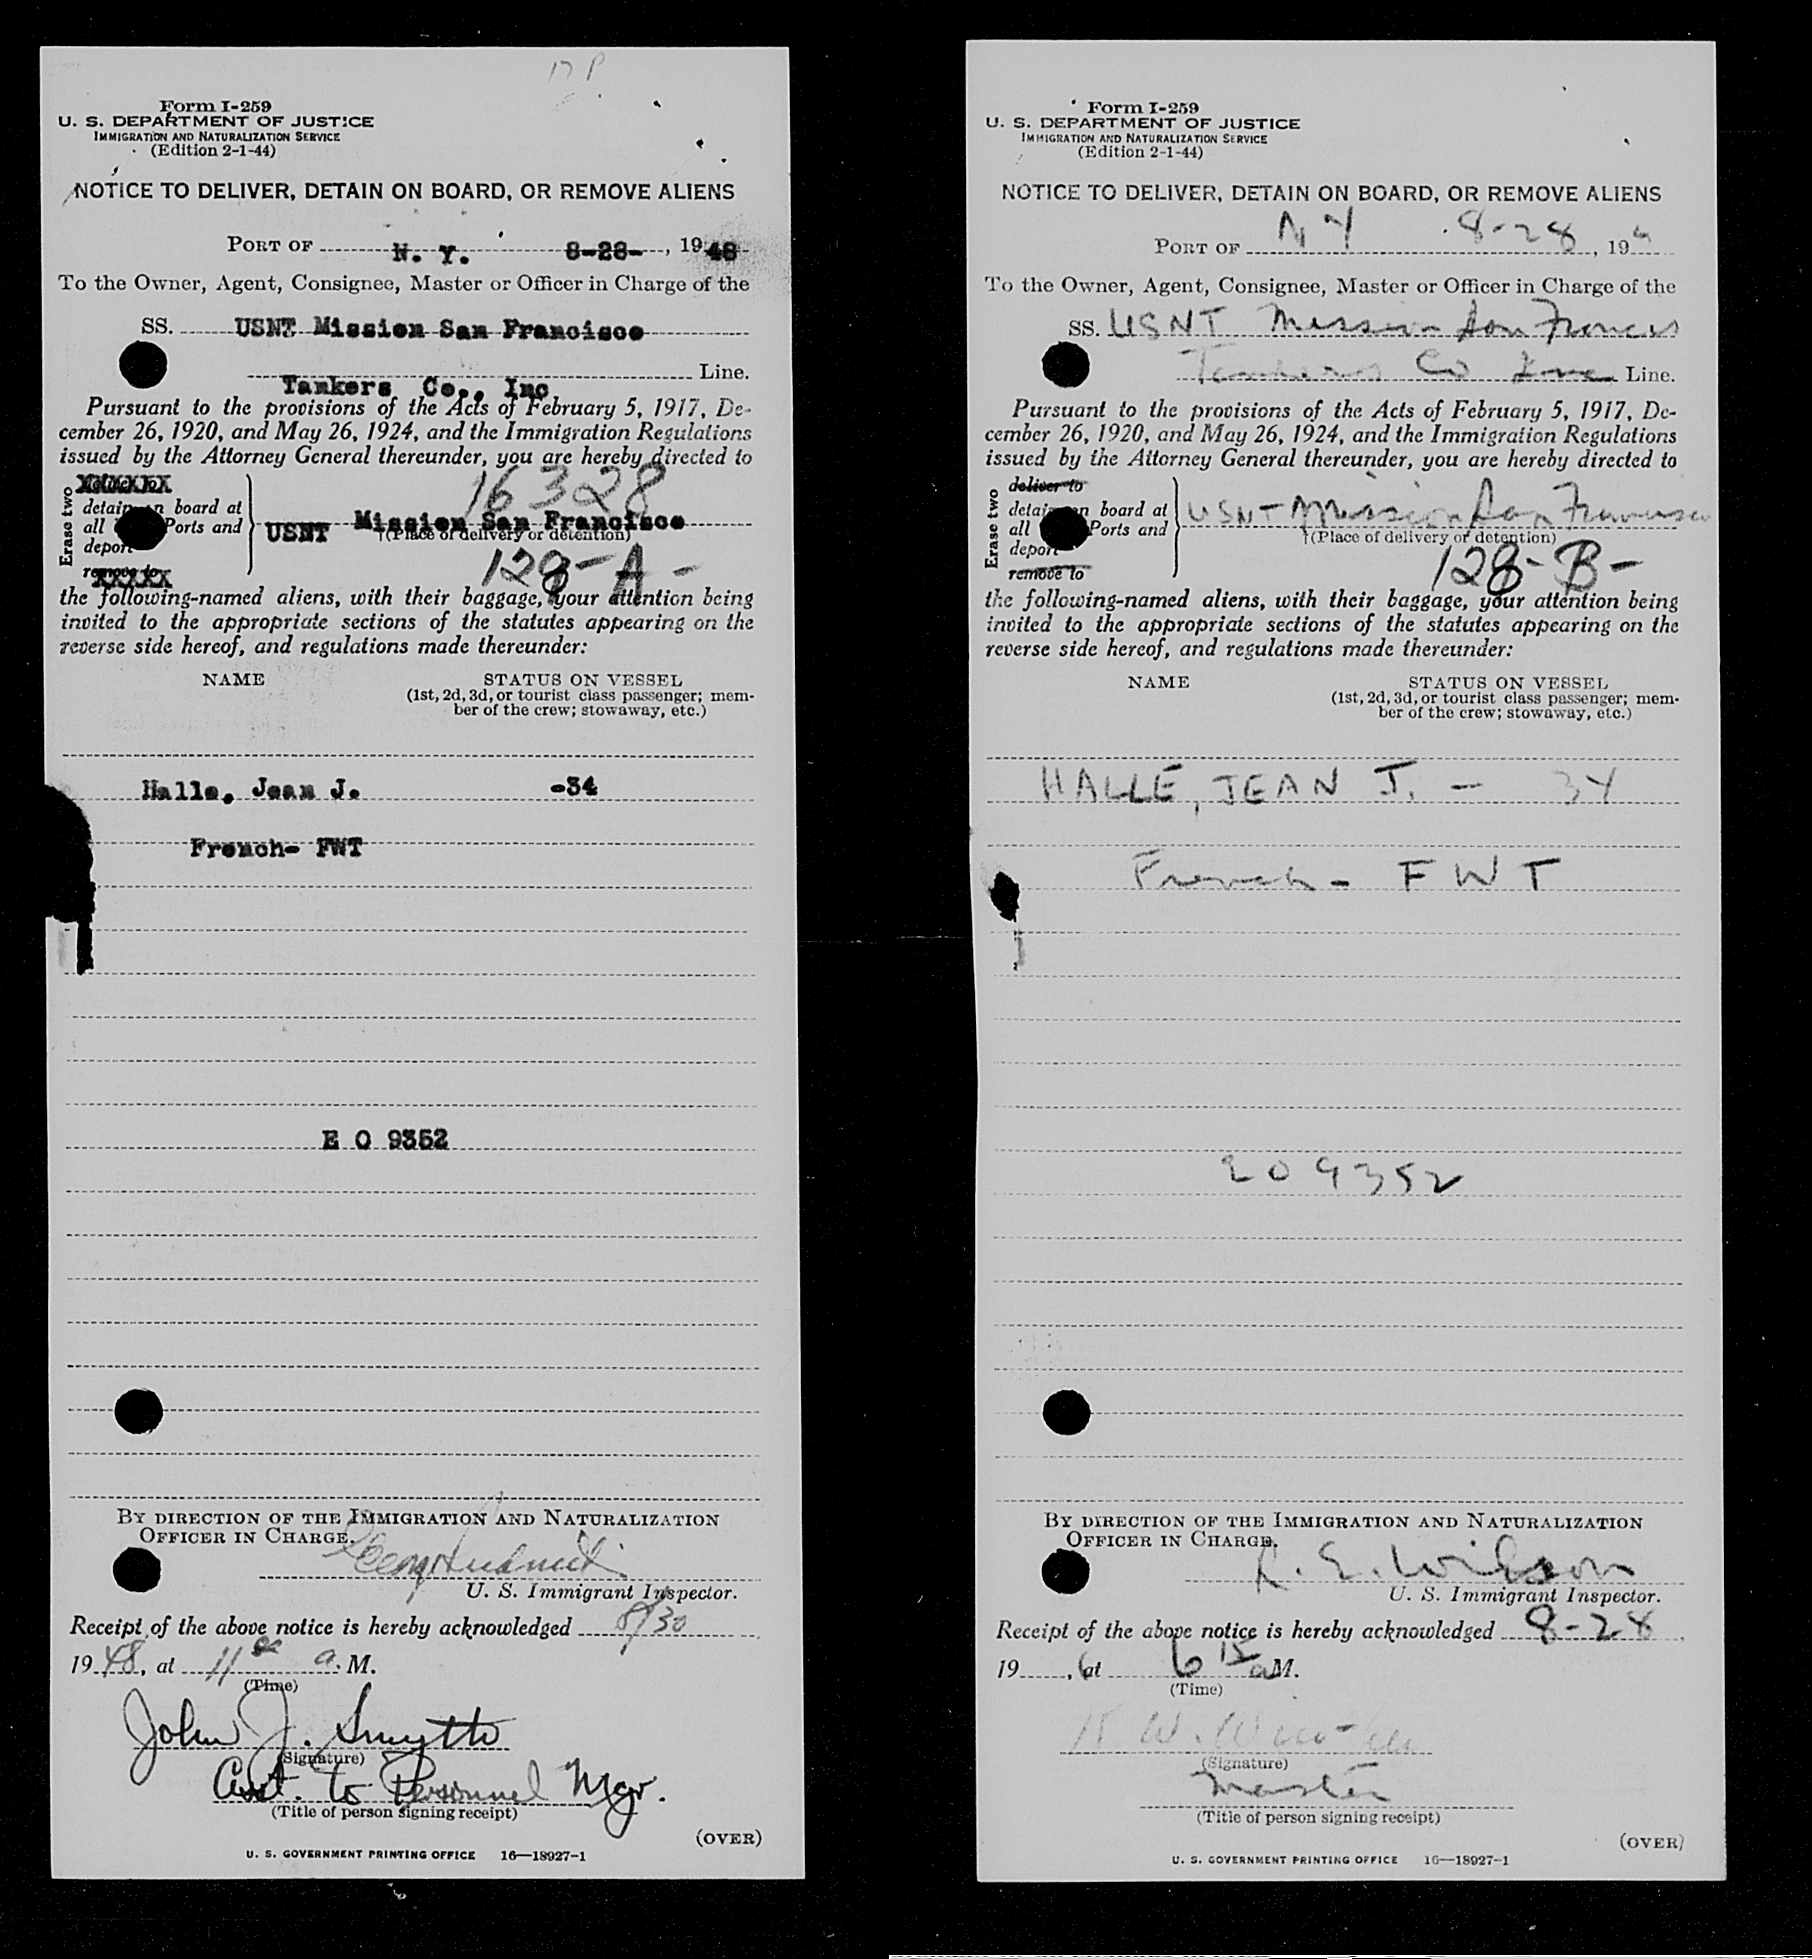 Form I-259
U. S. DEPARTMENT OF JUSTICE
IMMIGRATION AND NATURALIZATION SERVICE
(Edition 2-1-44)
NOTICE TO DELIVER, DETAIN ON BOARD, OR REMOVE ALIENS
PORT OF N. Y. 8-28-, 1948
To the Owner, Agent, Consignee, Master or Officer in Charge of the
SS. USNT Mission San Francisco
Line.
Tankers Co., Inc
Pursuant to the provisions of the Acts of February 5, 1917, De-
cember 26, 1920, and May 26, 1924, and the Immigration Regulations
issued by the Attorney General thereunder, you are hereby directed to
16328
Erase two
detain on board at
all Ports and
deport
remove to
USNT Mission San Francisco
(Place of delivery or detention)
128-A-
the following-named aliens, with their baggage, your attention being
invited to the appropriate sections of the statutes appearing on the
reverse side hereof, and regulations made thereunder:
NAME STATUS ON VESSEL
(1st, 2d, 3d, or tourist class passenger; mem-
ber of the crew; stowaway, etc.)
Halle, Jean J. -34
French- FWT
E O 9352
BY DIRECTION OF THE IMMIGRATION AND NATURALIZATION
OFFICER IN CHARGE.
U. S. Immigrant Inspector.
Receipt of the above notice is hereby acknowledged 8/30
1948, at 11 a. M.
(Time)
John J. Smyth
(Signature)
Asst. to Personnel Mgr.
(Title of person signing receipt)
(OVER)
U. S. GOVERNMENT PRINTING OFFICE 16—18927-1
Form I-259
U. S. DEPARTMENT OF JUSTICE
IMMIGRATION AND NATURALIZATION SERVICE
(Edition 2-1-44)
NOTICE TO DELIVER, DETAIN ON BOARD, OR REMOVE ALIENS
PORT OF N Y 8-28, 19
To the Owner, Agent, Consignee, Master or Officer in Charge of the
SS. USNT Mission San Francis
Tankers Co Inc Line.
Pursuant to the provisions of the Acts of February 5, 1917, De-
cember 26, 1920, and May 26, 1924, and the Immigration Regulations
issued by the Attorney General thereunder, you are hereby directed to
Erase two
deliver to
detain on board at
all Ports and
deport
remove to
USNT Mission San Francisco
(Place of delivery or detention)
128-B-
the following-named aliens, with their baggage, your attention being
invited to the appropriate sections of the statutes appearing on the
reverse side hereof, and regulations made thereunder:
NAME STATUS ON VESSEL
(1st, 2d, 3d, or tourist class passenger; mem-
ber of the crew; stowaway, etc.)
HALLE, JEAN J. - 34
French - FWT
209352
BY DIRECTION OF THE IMMIGRATION AND NATURALIZATION
OFFICER IN CHARGE.
R. E. Wilson
U. S. Immigrant Inspector.
Receipt of the above notice is hereby acknowledged 8-28
19 , at 6 15 a M.
(Time)
(Signature)
Master
(Title of person signing receipt)
(OVER)
U. S. GOVERNMENT PRINTING OFFICE 16—18927-1